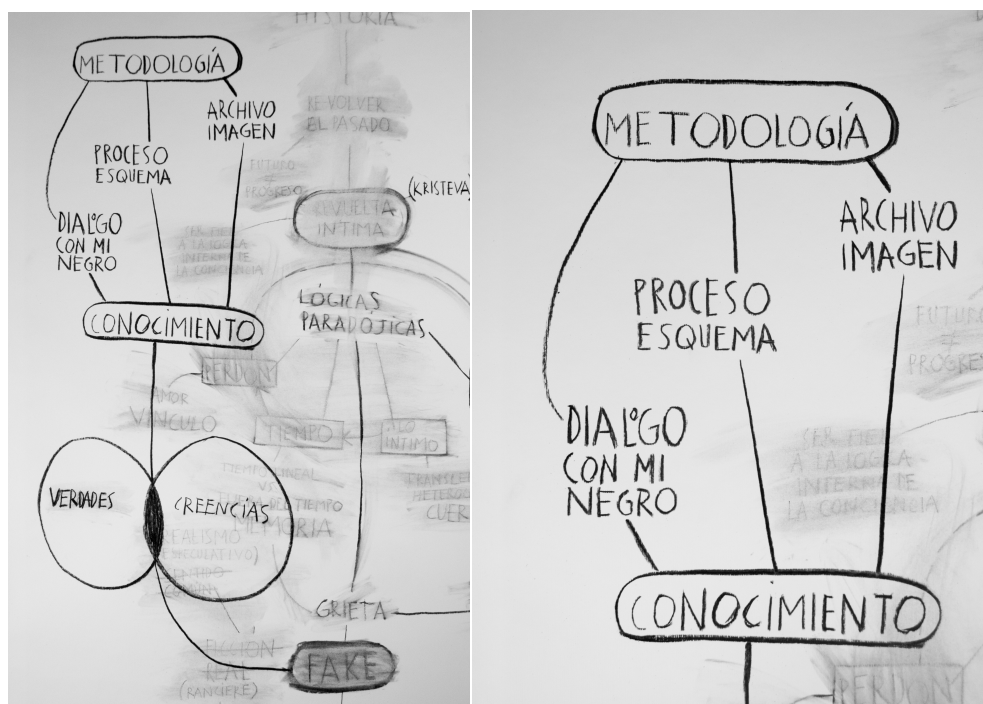 HISTORIA
METODOLOGÍA
ARCHIVO
IMAGEN
REVOLVER
EL PASADO
PROCESO
ESQUEMA
FUTURO
≠
PROGRESO
(KRISTEVA)
REVUELTA
ÍNTIMA
DIALOGO
CON MI
NEGRO
SER FIEL
A LA LOGICA
INTERNA DE
LA CONCIENCIA
LÓGICAS
PARADÓJICAS
CONOCIMIENTO
PERDÓN
AMOR
VINCULO
TIEMPO
LO
ÍNTIMO
TIEMPO LINEAL
VS
FUERA DEL TIEMPO
MEMORIA
CUER
VERDADES
CREENCÍAS
REALISMO
ESPECULATIVO)
SENTIDO
COMÚN
GRIETA
FICCIÓN
REAL
(RANCIERE)
FAKE
METODOLOGÍA
ARCHIVO
IMAGEN
PROCESO
ESQUEMA
FUTURO
≠
PROGRES
DIALOGO
CON MI
NEGRO
SER FIEL
A LA LOGICA
INTERNA DE
LA CONCIENCIA
CONOCIMIENTO
PERDÓN